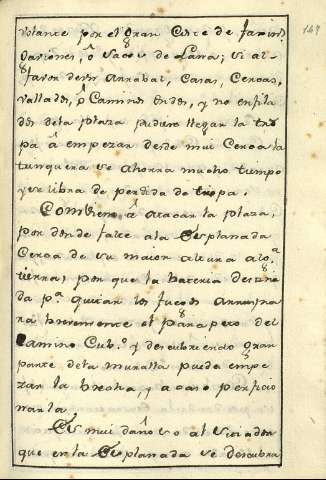 volante por el gran Corte de faxinas
Salchichones, ô Sacos de Lana; Si al
favor de un Arrabal, Casas, Cercas,
Vallados, ô Caminos ondos, y no enfila
dos dela plaza pudiere llegar la tro
pa â empezar desde mui Cerca la
trinquera se ahorra mucho tiempo
y se libra de perdida de tropa.
Combiene â atacar la plaza,
por donde falte ala Esplanada
Cerca de su maior altura alga.
tierra; por que la bateria destina
da pa. quitar los fuegos Arruyna
rá brevemente el parapeto del
Camino Cubto. y descubriendo gran
parte dela muralla puede empe
zar la brecha, y acaso perficio
narla.
Es mui dañoso al Sitiador
que en la Esplanada se descubra